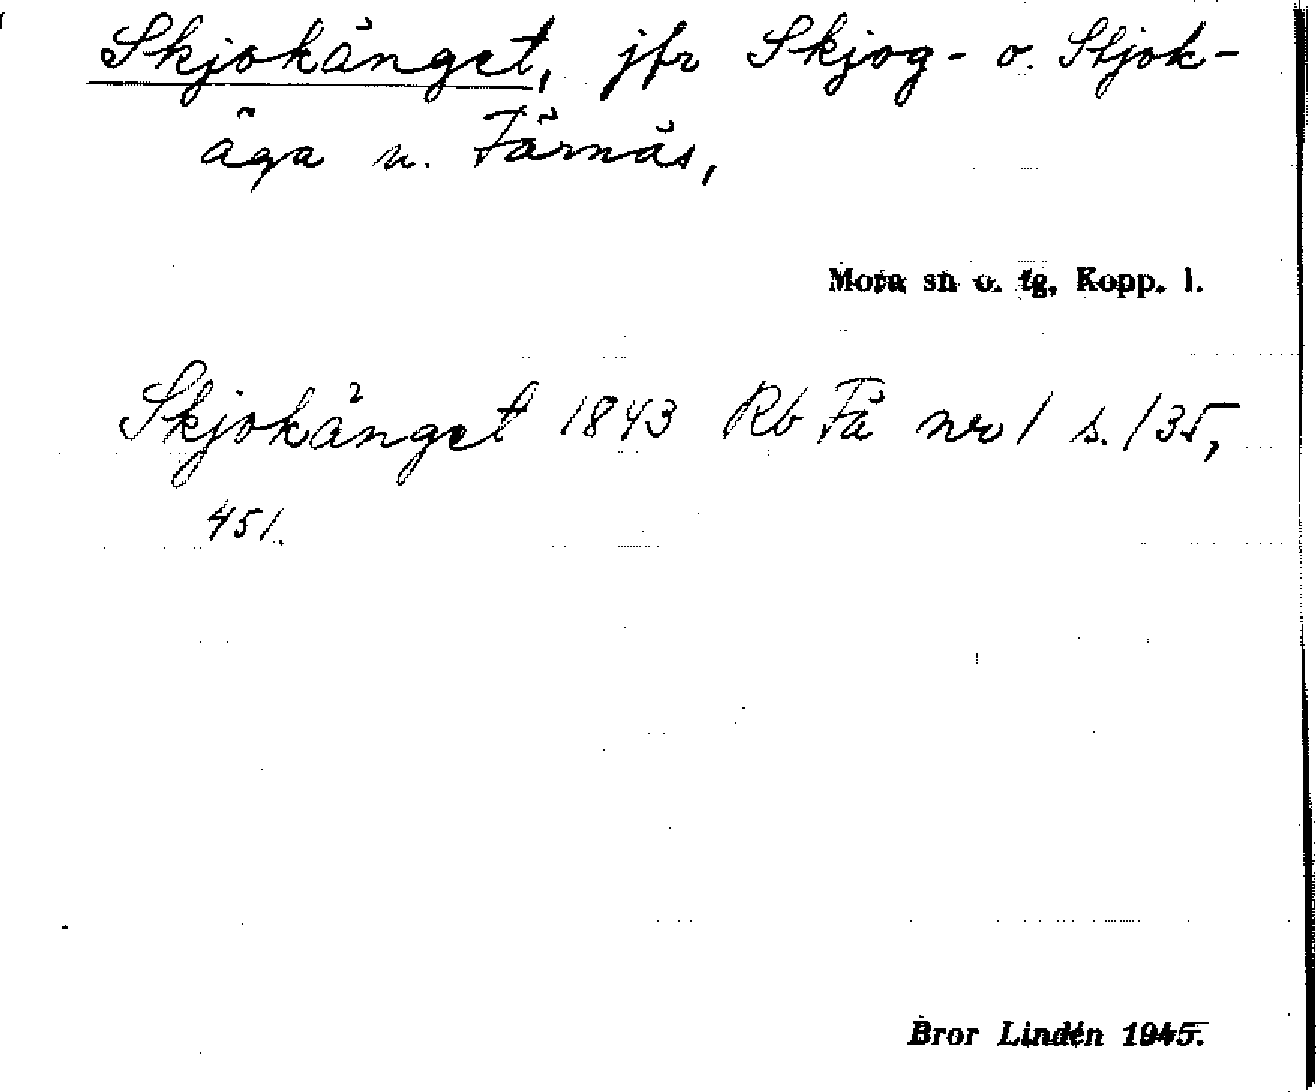 Skjokänget, jfr Skjog- o. Stjok-
äga u. Färnäs,
Mora sn o. tg, Kopp. l.
Skjokänget 1843 Rb Fä nr 1 s. 135,
451.
Bror Lindén 1945.